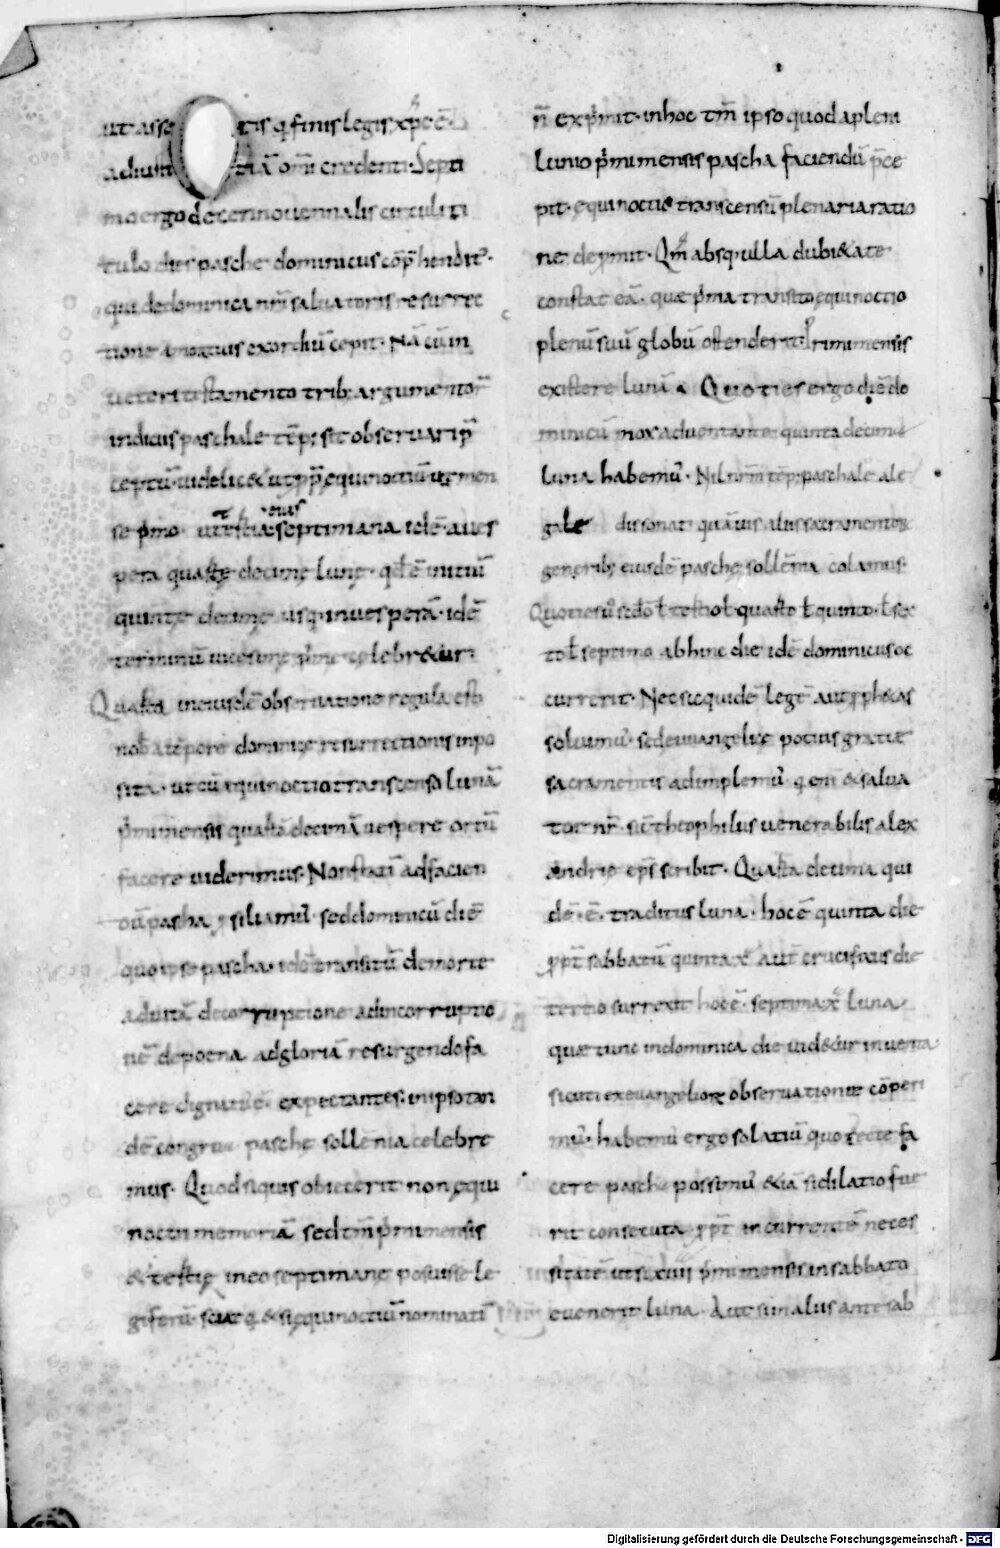 ut asse tis q finis legis xp̄c ē.
ad iusti tiā om̄i credenti. Septi
mo ergo decennovennalis circuli ti
tulo dies pasche dominicus cōp̄hendit᷑.
qui de dominica nr̄i salvatoris resurrec
tione a mortuis exordiū cepit. Nā cū in
veteri testamento trib; argumentoꝝ
indiciis paschale tēp; sit observari p̄
ceptū. videlic& ut p̄ equinoctiū ut men
se p̄mo. ut tertia eius septimana idē a ves
pera quarte decime lune. qd ē initiū
quinte decime usq. in vesperā. idē
terminū vicesime p̄me celebr&ur.
Quarta in eiusdē observatione regula est
nob a tēpore dominice resurrectionis inpo
sita. ut cū equinoctio transcenso lunā
p̄mi mensis quartā decimā vespere ortū
facere viderimus. Non statī ad facien
dū pascha siliamus. sed dominicū diē
quo ipse pascha. idē transitū de morte
ad vitā de corruptione ad incorruptio
nē de poena ad gloriā resurgendo fa
cere dignatus ē. expectantes. in ipso tan
dē congrua pasche sollēnia celebre
mus. Quod siquis obiecerit non equi
noctii memoriā sed tm̄ p̄mi mensis
& tertie in eo septimane posuisse le
giferū. sciat q & si equinoctiū nominatī
n̄ exp̄mit. in hoc tm̄ ipso quod a pleni
lunio p̄mi mensis pascha faciendū p̄ce
pit. equinoctii transcensū plenaria ratio
ne depromit. Qm̄ absq. ulla dubi&ate
constat eā. quae p̄ma transito equinoctio
plenū suū globū ostenderit. Primi mensis
existere lunā. Quoties ergo diē do
minicū mox adventante quinta decima
luna habemus. Nil nr̄m tēp; paschale a le
gale dissonat quāvis aliis sacramentoꝝ
generib; eiusdē pasche sollēnia colamus.
Quoties v̄ sedo ł tertio ł quarto ł quinto. ł sex
to ł septimo abhinc die idē dominicus oc
currerit. Nec sic quidē legē aut p̄ph&as
solvimus. sed evangelicę potius gratię
sacramentis adimplemus. qm̄ & salva
tor nr̄. sic theophilus venerabilis alex
andrie ep̄s scribit. Quarta decima qui
dē. ē. traditus luna. hoc ē quinta die
p̄pt sabbatū quinta x aut crucifixus die
tertio surrexit hoc ē. septima x luna
quae tunc in dominica die vid&ur inventa
sicuti ex evangelioꝝ observatione cōperi
mus. habemus ergo solatiū quo recte fa
cere pasche possimus &iā si dilatio fue
rit consecuta p̄pt incurrentē neces
sitatē ut si. xiiii p̄mi mensis in sabbato
evenerit luna. Aut si in aliis ante sab
Digitalisierung gefördert durch die Deutsche Forschungsgemeinschaft - DFG